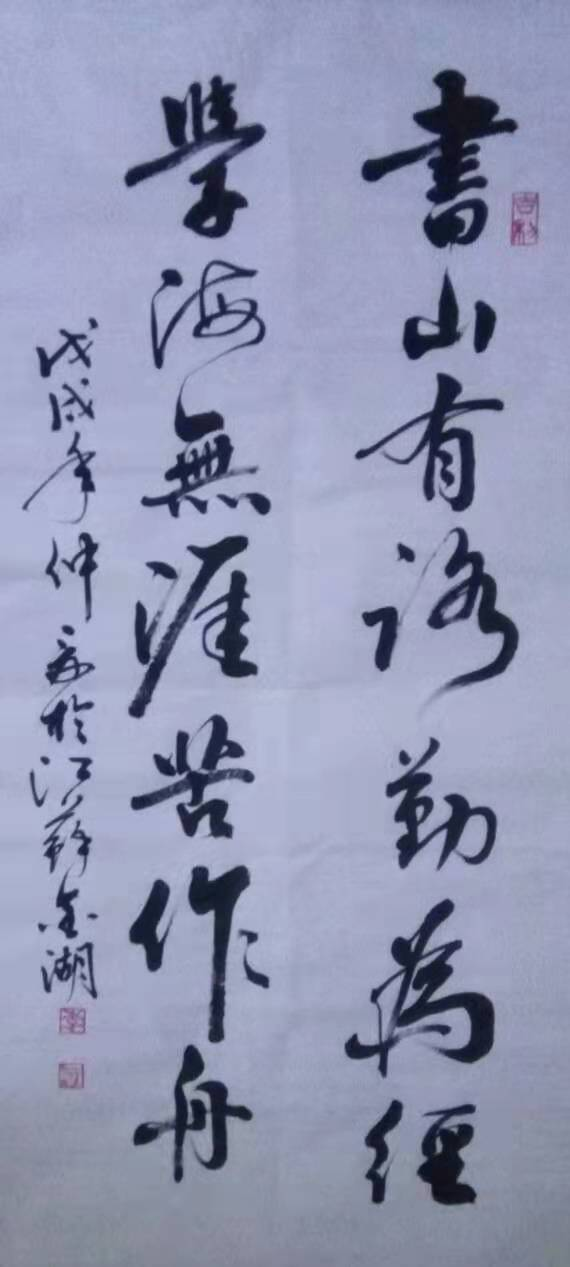 書山有路勤為徑
學海無涯苦作舟
戊戌年仲夏於江蘇金湖